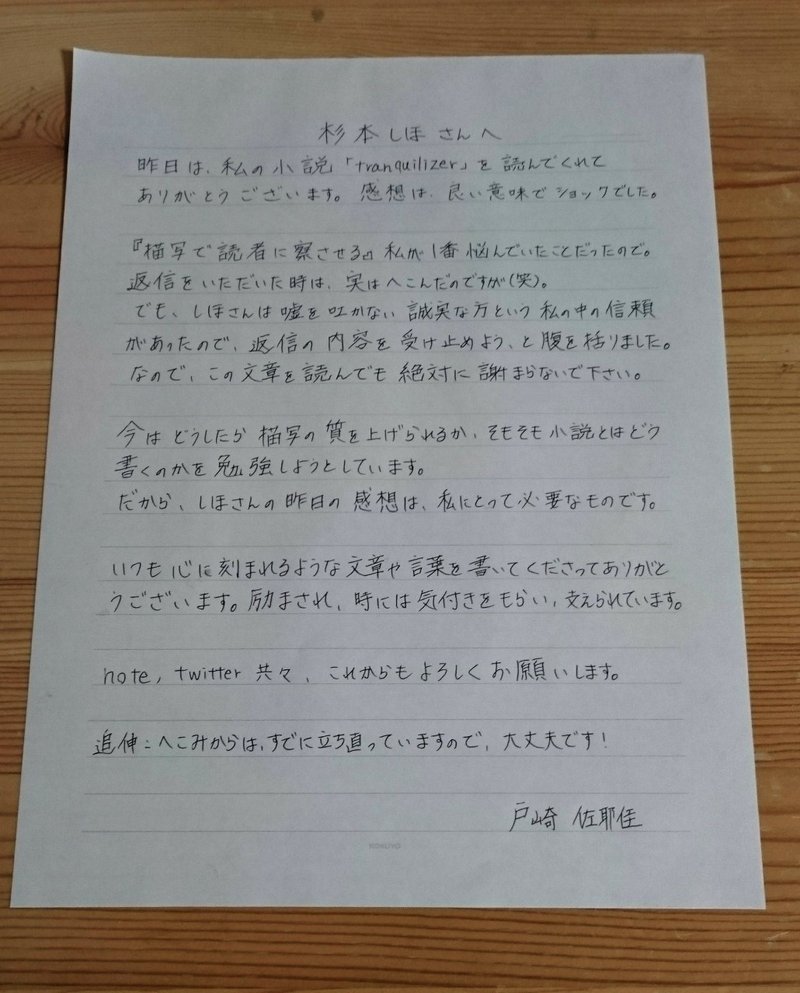 杉本しほさんへ
昨日は、私の小説「tranquilizer」を読んでくれて
ありがとうございます。感想は、良い意味でショックでした。
『描写で読者に察させる』私が1番悩んでいたことだったので。
返信をいただいた時は、実はへこんだのですが(笑)。
でも、しほさんは嘘を吐かない誠実な方という私の中の信頼
があったので、返信の内容を受け止めよう、と腹を括りました。
なので、この文章を読んでも絶対に謝まらないで下さい。
今はどうしたら描写の質を上げられるか、そもそも小説とはどう
書くのかを勉強しようとしています。
だから、しほさんの昨日の感想は、私にとって必要なものです。
いつも心に刻まれるような文章や言葉を書いてくださってありがと
うございます。励まされ、時には気付きをもらい、支えられています。
note, twitter 共々、これからもよろしくお願いします。
追伸:へこみからは、すでに立ち直っていますので、大丈夫です!
戸崎 佐耶佳
KOKUYO